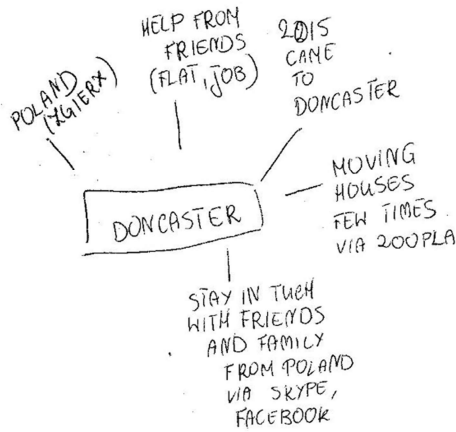 POLAND
(ZGIERX)
HELP FROM
FRIENDS
(FLAT, JOB)
2015
CAME
TO
DONCASTER
DONCASTER
MOVING
HOUSES
FEW TIMES
VIA ZOOPLA
STAY IN TUCH
WITH FRIENDS
AND FAMILY
FROM POLAND
VIA SKYPE,
FACEBOOK